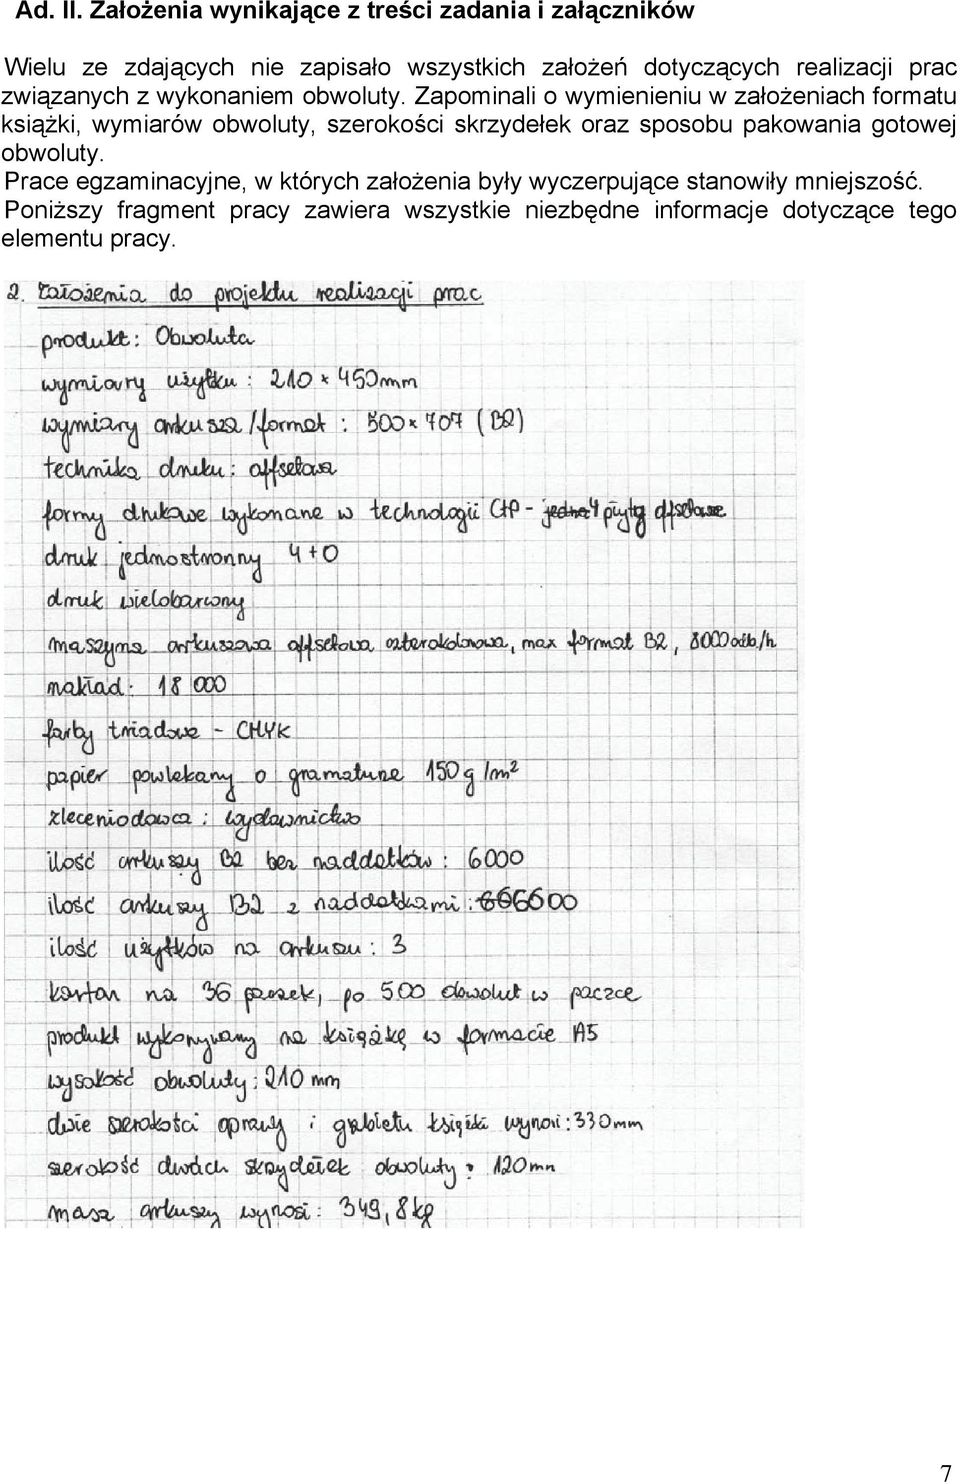 Ad. II. Założenia wynikające z treści zadania i załączników
Wielu ze zdających nie zapisało wszystkich założeń dotyczących realizacji prac
związanych z wykonaniem obwoluty. Zapominali o wymienieniu w założeniach formatu
książki, wymiarów obwoluty, szerokości skrzydełek oraz sposobu pakowania gotowej
obwoluty.
Prace egzaminacyjne, w których założenia były wyczerpujące stanowiły mniejszość.
Poniższy fragment pracy zawiera wszystkie niezbędne informacje dotyczące tego
elementu pracy.
2. Założenia do projektu realizacji prac
produkt: Obwoluta
wymiary użytku: 210 × 450mm
wymiary arkusza/format: 500 × 707 (B2)
technika druku: offsetowa
formy drukowe wykonane w technologii CtP - jedna 4 płyty offsetowe
druk jednostronny 4+0
druk wielobarwny
maszyna arkuszowa offsetowa czterokolorowa, max format B2, 8000odb/h
nakład: 18 000
farby triadowe - CMYK
papier powlekany o gramaturze 150g/m²
zleceniodawca: wydawnictwo
ilość arkuszy B2 bez naddatków: 6000
ilość arkuszy B2 z naddatkami: 6600
ilość użytków na arkuszu: 3
karton na 36 paczek, po 500 obwolut w paczce
produkt wykonywany na książkę w formacie A5
wysokość obwoluty: 210 mm
dwie szerokości oprawy i grzbietu książki wynosi: 330mm
szerokość dwóch skrzydełek obwoluty: 120mm
masa arkuszy wynosi: 349,8kg
7